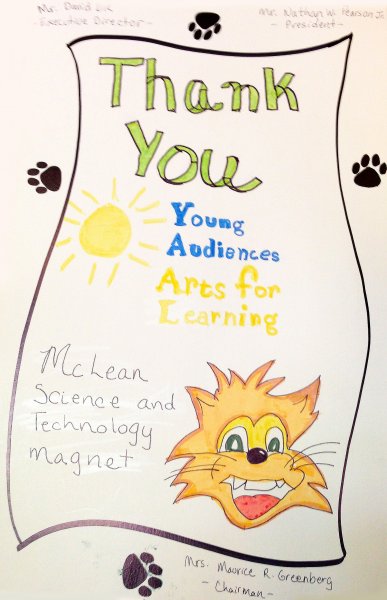 Mr. David
- Executive Director -
Mr. Nathan W. Pearson Jr.
- President -
Thank
You
Young
Audiences
Arts for
Learning
McLean
Science and
Technology
magnet
Mrs. Maurice R. Greenberg
- Chairman -